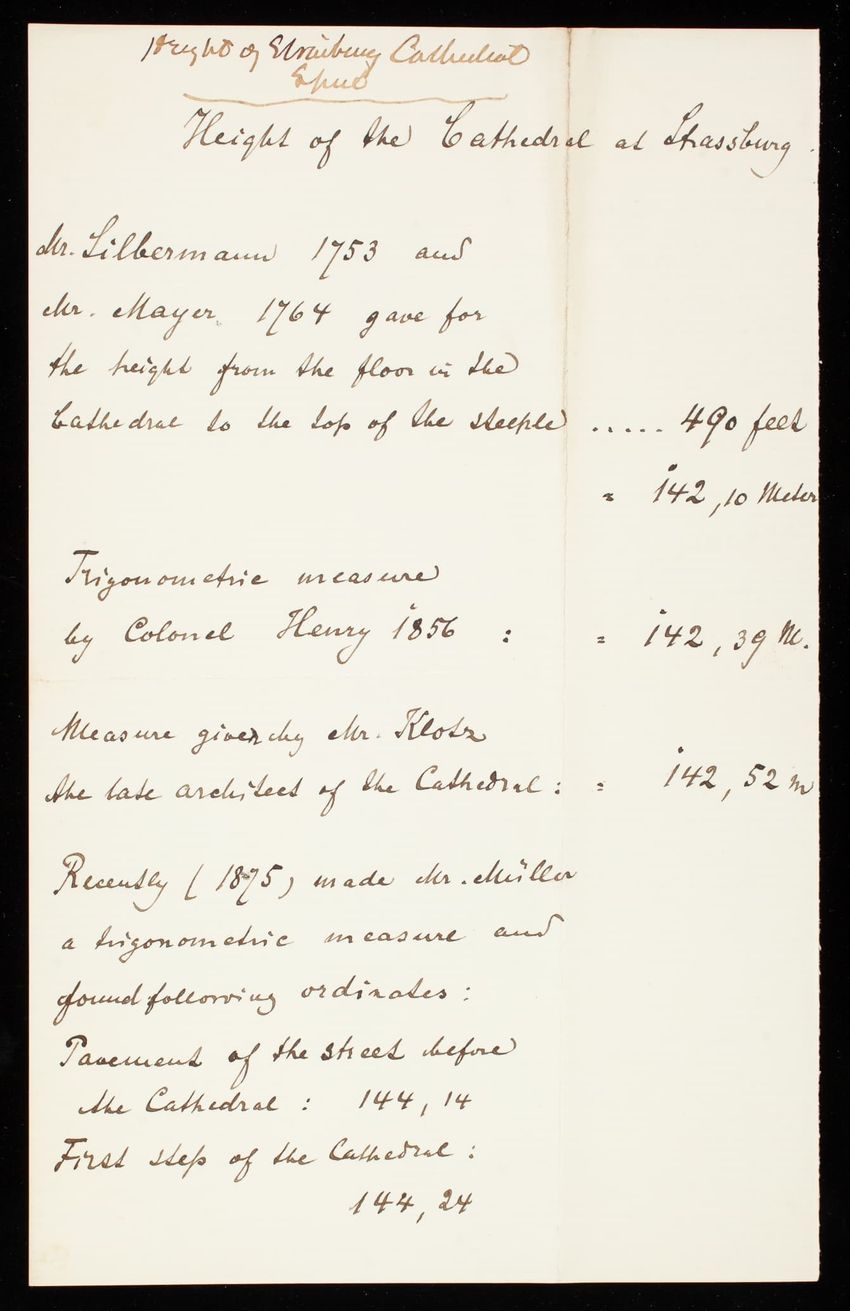 Height of Strasburg Cathedral
Spire
Height of the Cathedral at Strassburg.
Mr. Silbermann 1753 and
Mr. Mayer 1764 gave for
the height from the floor in the
Cathedral to the top of the steeple ..... 490 feet
= 142,10 Meter
Trigonometric measure
by Colonel Henry 1856 : = 142,39 M.
Measure given by Mr. Klotz
the late architect of the Cathedral : = 142,52 m
Recently (1875) made Mr. Müller
a trigonometric measure and
found following ordinates :
Pavement of the street before
the Cathedral : 144,14
First step of the Cathedral :
144,24